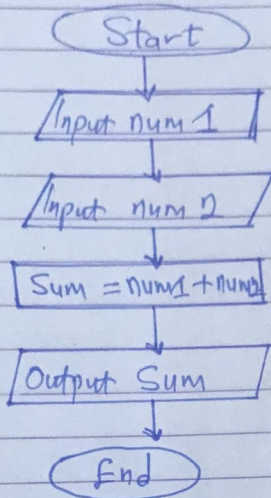 Start
Input num 1
Input num 2
Sum = num1 + num2
Output Sum
End